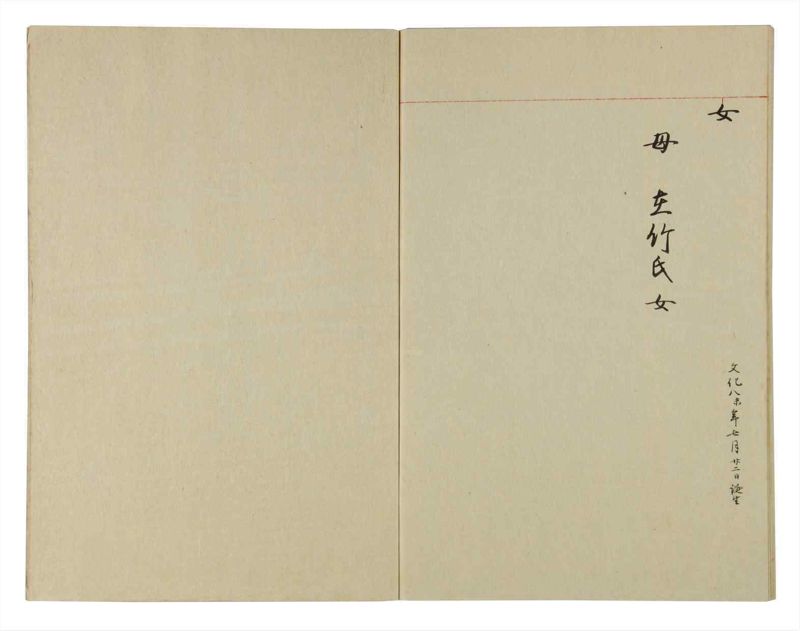 女
文化八未年七月廿二日誕生
母 在竹氏女